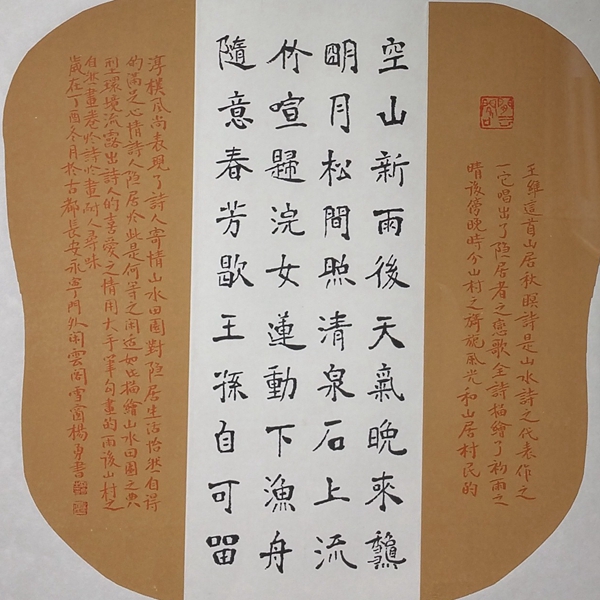 王維這首山居秋暝詩是山水詩之代表作之
一它唱出了隐居者之戀歌全詩描繪了初雨之
晴後傍晚時分山村之旖旎風光和山居村民的
空山新雨後天氣晚來龝
明月松間照清泉石上流
竹喧歸浣女蓮動下漁舟
隨意春芳歇王孫自可留
淳樸風尚表現了詩人寄情山水田園對隐居生活怡然自得
的滿足心情詩人隐居於此是何等之閑适如此描繪山水田園之典
型環境流露出詩人的喜愛之情用大手筆勾畫的雨後山村之
自然畫卷於詩於畫耐人尋味
歲在丁酉冬月於古都長安永寧門外閑雲閣雪窗楊勇書